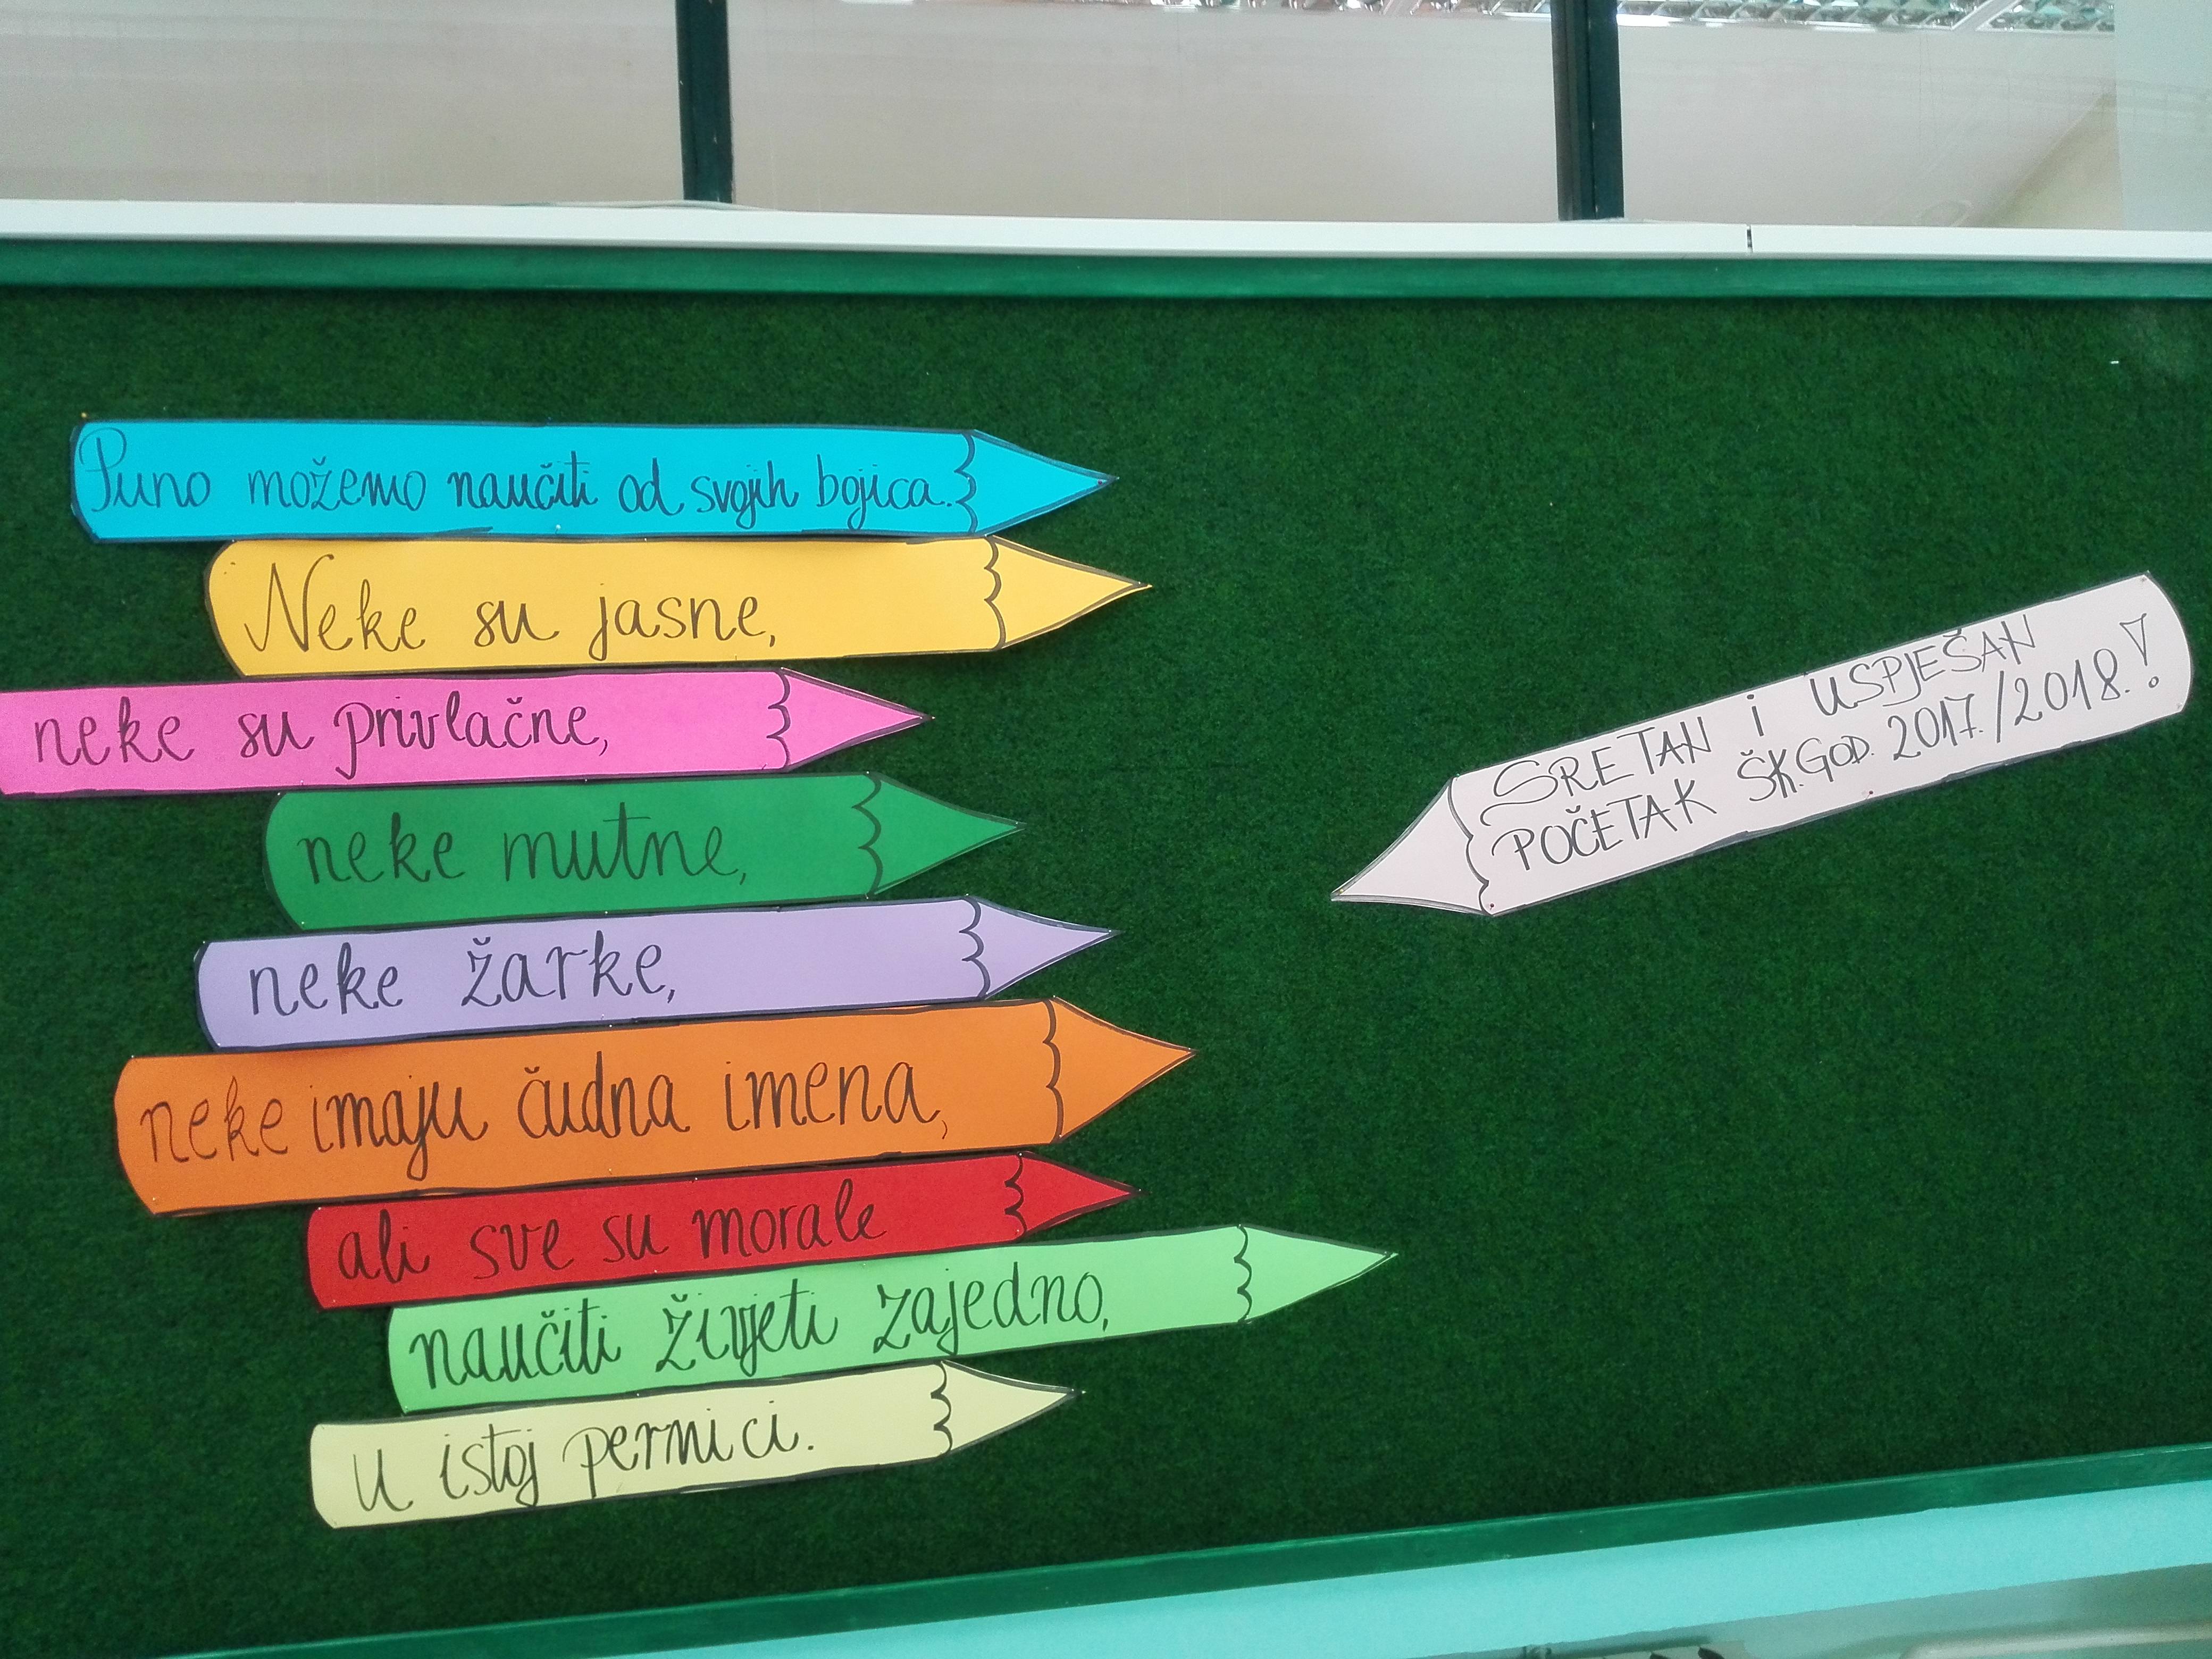 Puno možemo naučiti od svojih bojica.
Neke su jasne,
neke su privlačne,
neke mutne,
neke žarke,
neke imaju čudna imena,
ali sve su morale
naučiti živjeti zajedno,
u istoj pernici.
SRETAN i USPJEŠAN
POČETAK ŠK.GOD. 2017./2018.!